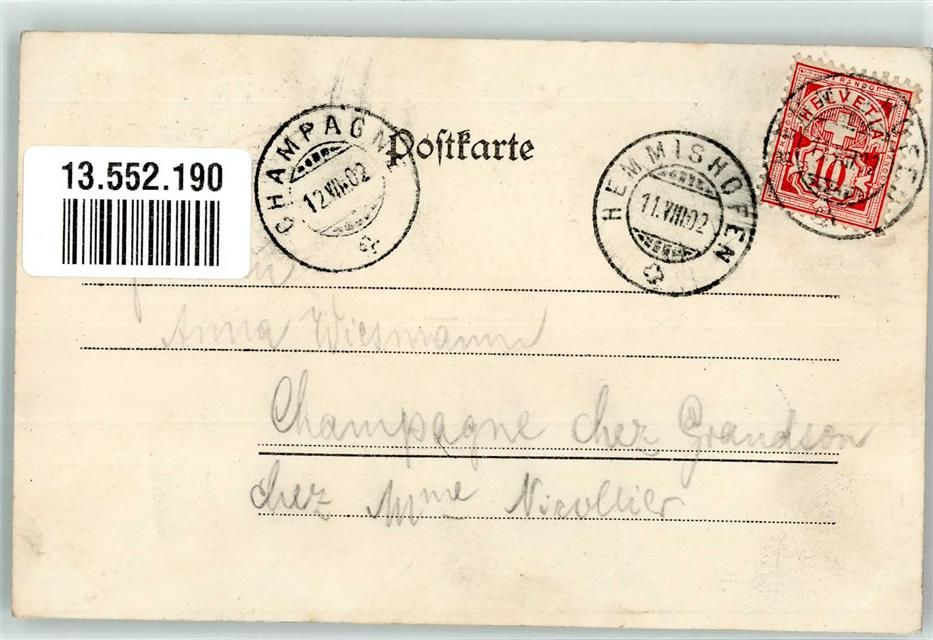 13.552.190
Postkarte
CHAMPAGNE
12.VIII.02
HEMMISHOFEN
11.VIII.02
FRANCO
HELVETIA
10
Anna Wiesmann
Champagne chez Grandson
chez Mme Nicollier